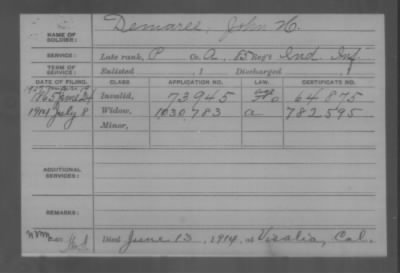 NAME OF SOLDIER: Demaree, John H.
SERVICE: Late rank, P Co. A, 85 Reg't Ind. Inf.
TERM OF SERVICE: Enlisted , 1 Discharged , 1
DATE OF FILING. CLASS. APPLICATION NO. LAW. CERTIFICATE NO.
1865 June 24 Invalid, 73,945 64875
1914 July 8 Widow, 1030,783 a 782595
Minor,
ADDITIONAL SERVICES:
REMARKS:
Died June 13, 1914, at Visalia, Cal.